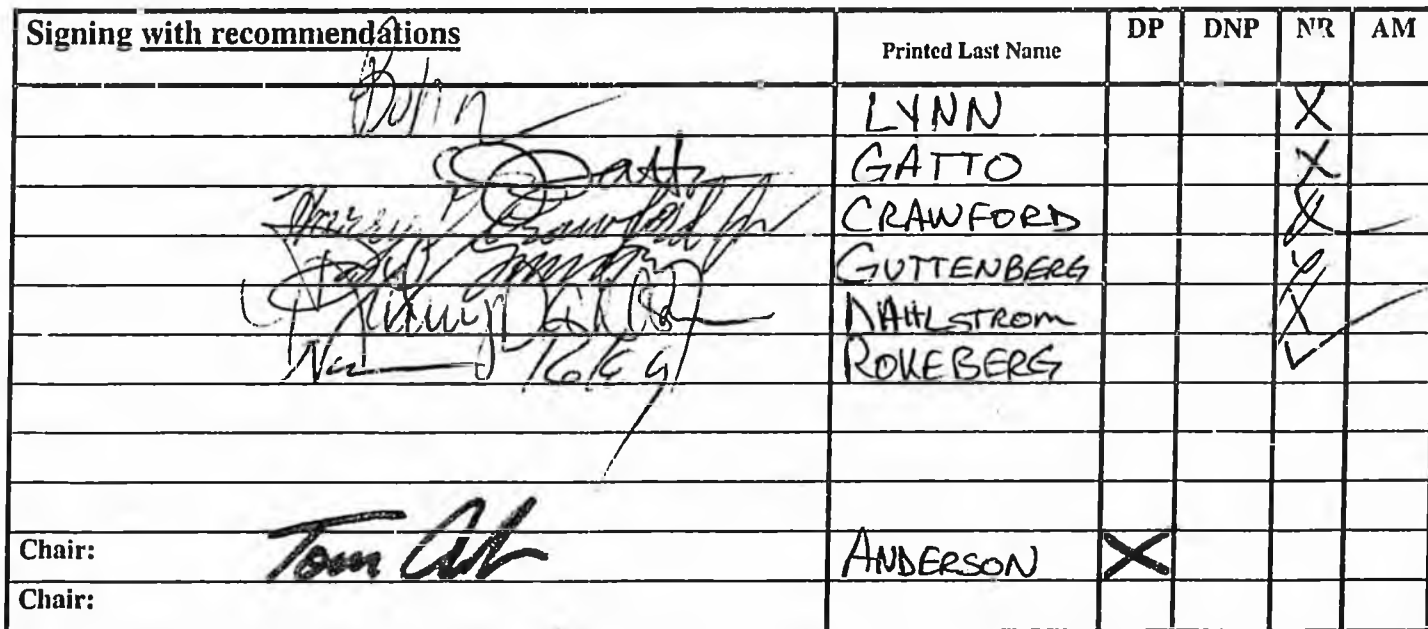 Signing with recommendations Printed Last Name DP DNP NR AM
LYNN X
Gatto GATTO X
Harry Crawford Jr CRAWFORD X
GUTTENBERG X
DAHLSTROM X
ROKEBERG
Chair: Tom ANDERSON X
Chair: